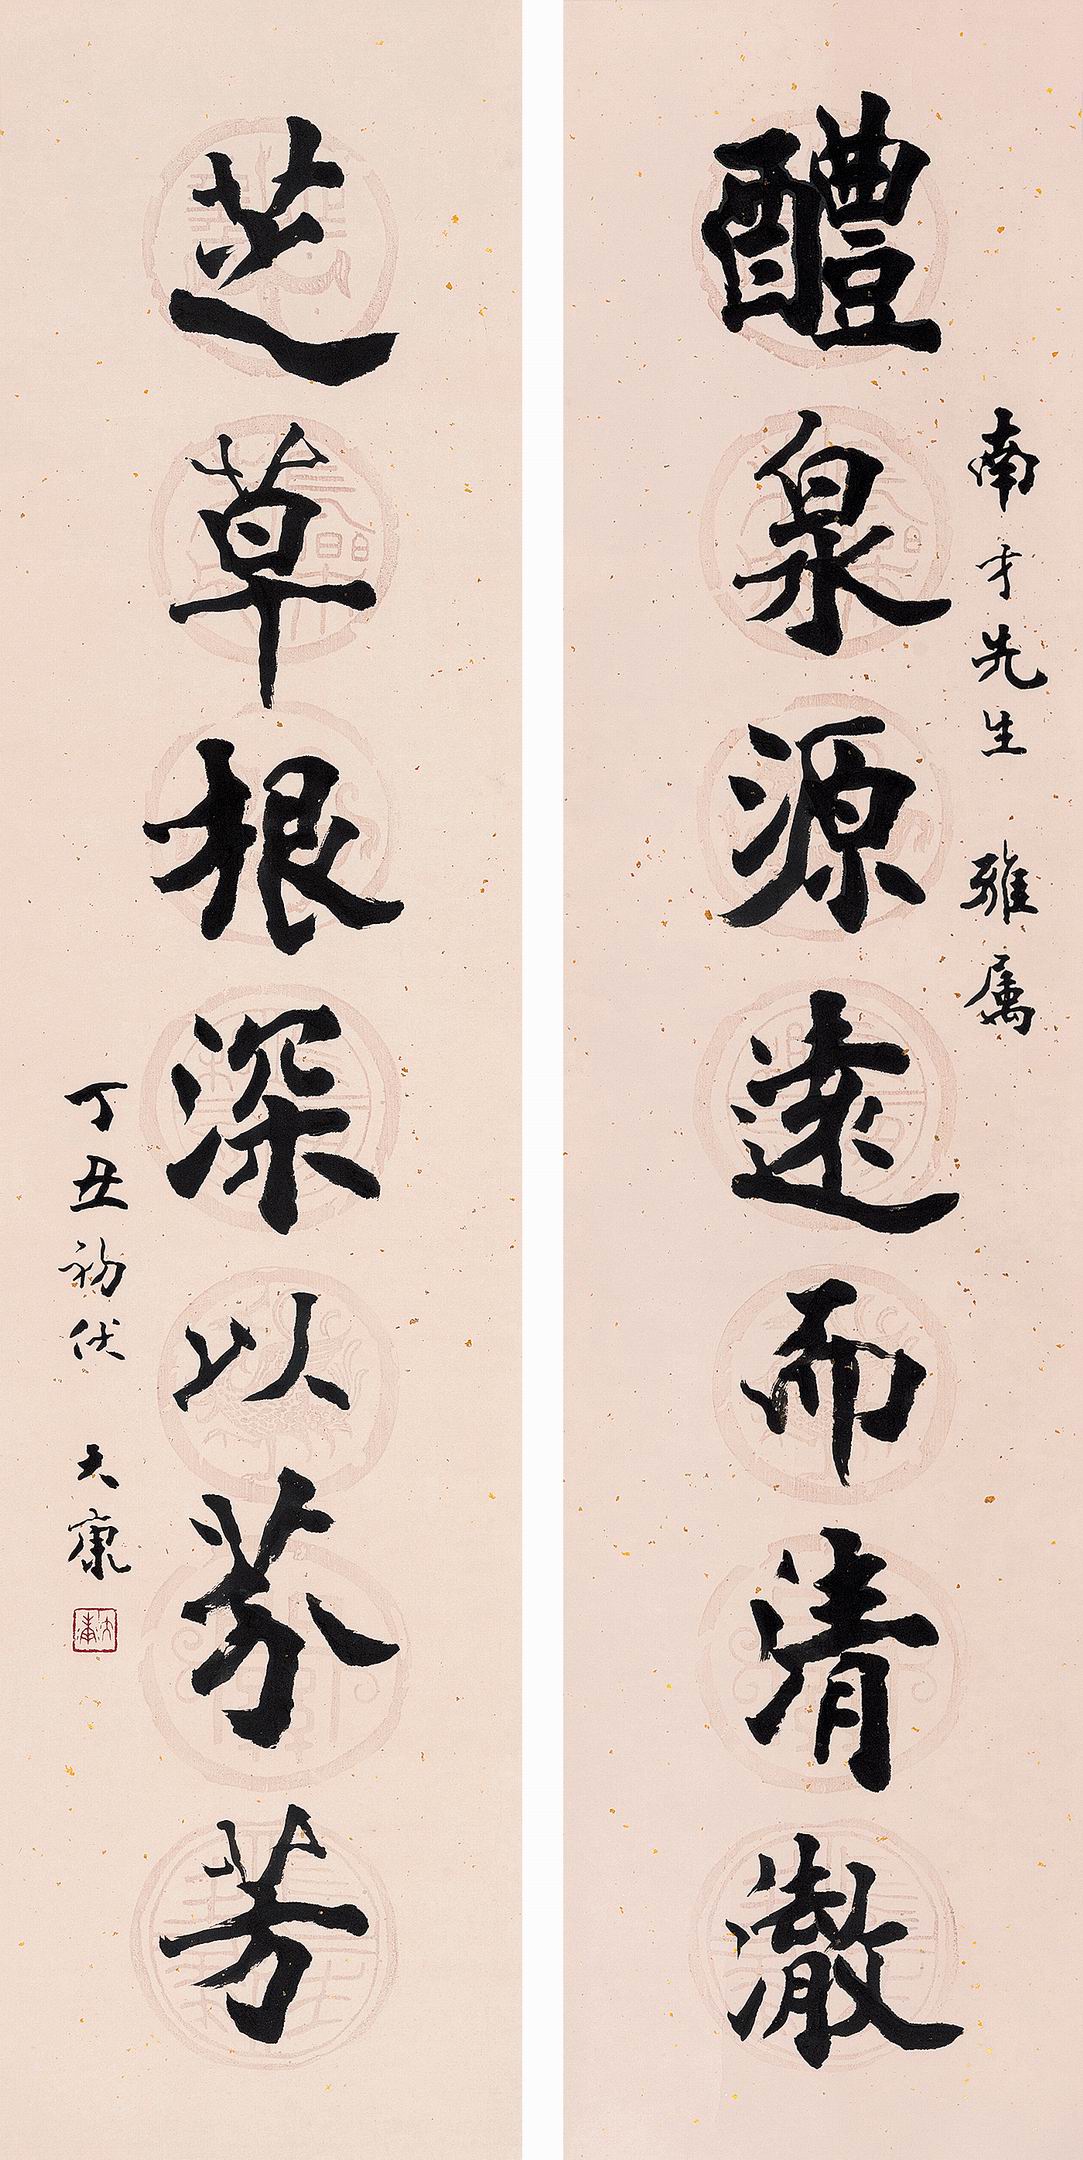 南才先生 雅属
醴泉源遠而清澈
芝草根深以芬芳
丁丑初伏 大康